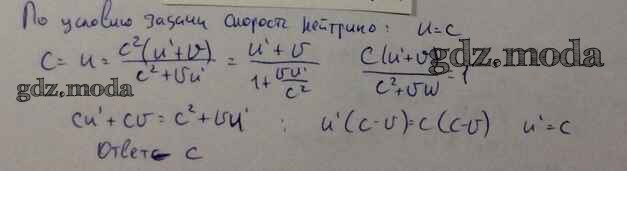 По условию задачи скорость нейтрино: u=c
c = u = c²(u'+v)/(c²+vu') = (u'+v)/(1+vu'/c²) c(u'+v)/(c²+vu') = 1
gdz.moda
gdz.moda
cu'+cv = c²+vu' ; u'(c-v)=c(c-v) u'=c
Ответ c